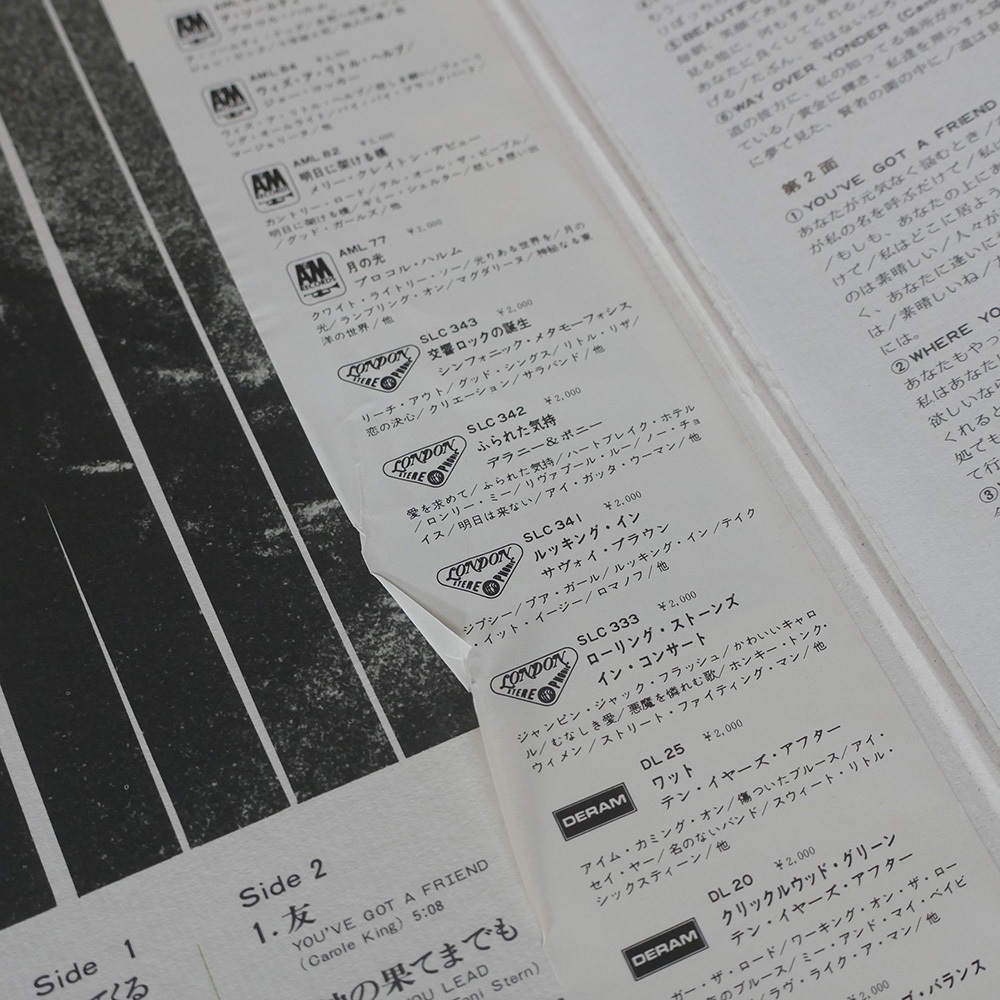 A&M
RECORDS
AML 84
ウィズ・ア・リトル・ヘルプ/
ジョー・コッカー
A&M
RECORDS
AML 82
明日に架ける橋
メリー・クレイトン・デビュー
カントリー・ロード/テル・オール・ザ・ピープル/
明日に架ける橋/ギミー・シェルター/悲しき想い出
/グッド・ガールズ/他
A&M
RECORDS
AML 77 ¥2,000
月の光
プロコル・ハルム
クワイト・ライトリー・ソー/光りある世界を/月の
光/ランブリング・オン/マグダリーヌ/神秘なる東
洋の世界/他
LONDON
STEREO PHONIC
SLC 343 ¥2,000
交響ロックの誕生
シンフォニック・メタモーフォシス
リーチ・アウト/グッド・シングス/リトル・リザ/
恋の決心/クリエーション/サラバンド/他
LONDON
STEREO PHONIC
SLC 342 ¥2,000
ふられた気持
デラニー&ボニー
愛を求めて/ふられた気持/ハートブレイク・ホテル
/ロンリー・ミー/リヴァプール・ルー/ノー・チョ
イス/明日は来ない/アイ・ガッタ・ウーマン/他
LONDON
STEREO PHONIC
SLC 341 ¥2,000
ルッキング・イン
サヴォイ・ブラウン
ジプシー/プア・ガール/ルッキング・イン/テイク
・イット・イージー/ロマノフ/他
LONDON
STEREO PHONIC
SLC 333 ¥2,000
ローリング・ストーンズ
イン・コンサート
ジャンピン・ジャック・フラッシュ/かわいいキャロ
ル/むなしき愛/悪魔を憐れむ歌/ホンキー・トンク・
ウィメン/ストリート・ファイティング・マン/他
DERAM
DL 25 ¥2,000
ワット
テン・イヤーズ・アフター
アイム・カミング・オン/傷ついたブルース/アイ・
セイ・ヤー/名のないバンド/スウィート・リトル・
シックスティーン/他
DERAM
DL 20 ¥2,000
クリックルウッド・グリーン
テン・イヤーズ・アフター
ガー・ザ・ロード/ワーキング・オン・ザ・ロー
のブルース/ミー・アンド・マイ・ベイビ
ラヴ・ライク・ア・マン/他
¥2,000
・バランス
Side 1
てくる
Side 2
1. 友
YOU'VE GOT A FRIEND
(Carole King) 5:08
の果てまでも
YOU LEAD
⑤BEAUTIFU
⑥WAY OVER YONDER (Caro
道の彼方に、私の知ってる場所がある
ている/黄金に輝き、私達を照らす太
に夢て見た、賢者の園の中に/道は
第2面
①YOU'VE GOT A FRIEND
あなたが元気なく悩むとき/
が私の名を呼ぶだけて/私は
/もしも、あなたの上に
けて/私はどこに居よう
のは素晴しい/人々が
く、あなたに逢いに
は/素晴しいね/
には。
②WHERE YO
あなたもやっ
私はあなた
欲しいな
くれると
処でも
て行
③